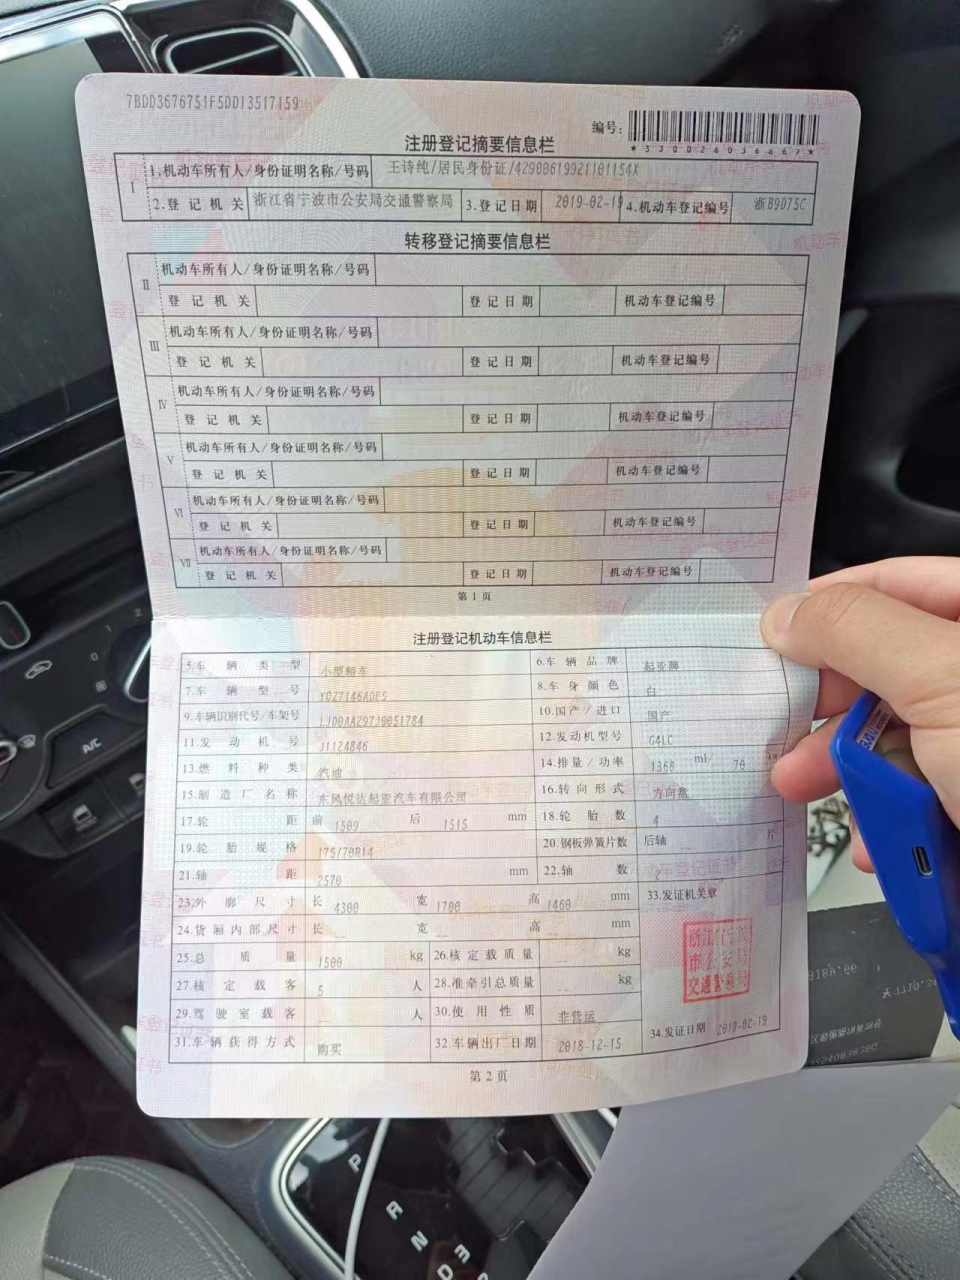 7BDD3676751F5DD13517159
编号：
*330026036667*
注册登记摘要信息栏
Ⅰ 1.机动车所有人/身份证明名称/号码 王诗纯/居民身份证/42900619921101154X
2.登记机关 浙江省宁波市公安局交通警察局 3.登记日期 2019-02-19 4.机动车登记编号 浙B9D75C
转移登记摘要信息栏
Ⅱ 机动车所有人/身份证明名称/号码
登记机关 登记日期 机动车登记编号
Ⅲ 机动车所有人/身份证明名称/号码
登记机关 登记日期 机动车登记编号
Ⅳ 机动车所有人/身份证明名称/号码
登记机关 登记日期 机动车登记编号
Ⅴ 机动车所有人/身份证明名称/号码
登记机关 登记日期 机动车登记编号
Ⅵ 机动车所有人/身份证明名称/号码
登记机关 登记日期 机动车登记编号
Ⅶ 机动车所有人/身份证明名称/号码
登记机关 登记日期 机动车登记编号
第1页
注册登记机动车信息栏
5.车辆类型 小型轿车 6.车辆品牌 起亚牌
7.车辆型号 YQZ7146ADE5 8.车身颜色 白
9.车辆识别代号/车架号 LJD0AA297J0051784 10.国产/进口 国产
11.发动机号 J1124846 12.发动机型号 G4LC
13.燃料种类 汽油 14.排量/功率 1368 ml/ 70 kw
15.制造厂名称 东风悦达起亚汽车有限公司 16.转向形式 方向盘
17.轮距 前 1509 后 1515 mm 18.轮胎数 4
19.轮胎规格 175/70R14 20.钢板弹簧片数 后轴 -- 片
21.轴距 2570 mm 22.轴数 2
23.外廓尺寸 长 4300 宽 1700 高 1460 mm 33.发证机关章
24.货厢内部尺寸 长 -- 宽 -- 高 -- mm
25.总质量 1500 kg 26.核定载质量 -- kg
27.核定载客 5 人 28.准牵引总质量 -- kg
29.驾驶室载客 -- 人 30.使用性质 非营运
31.车辆获得方式 购买 32.车辆出厂日期 2018-12-15 34.发证日期 2019-02-19
浙江省宁波
市公安局
交通警察局
第2页
A/C
P
R
N
D